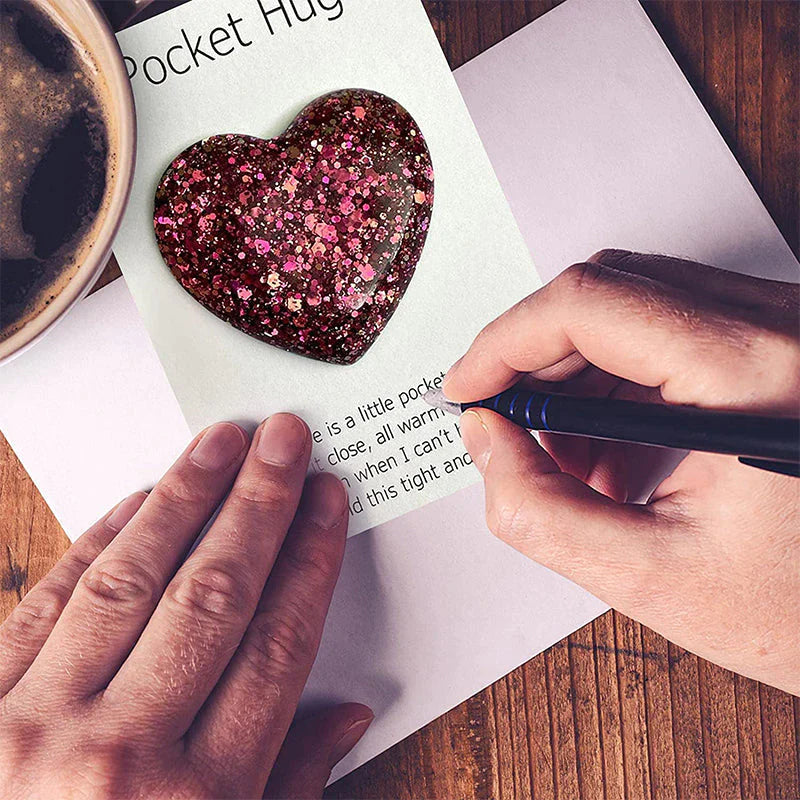 Pocket Hug
e is a little pocket
t close, all warm
n when I can't h
d this tight and